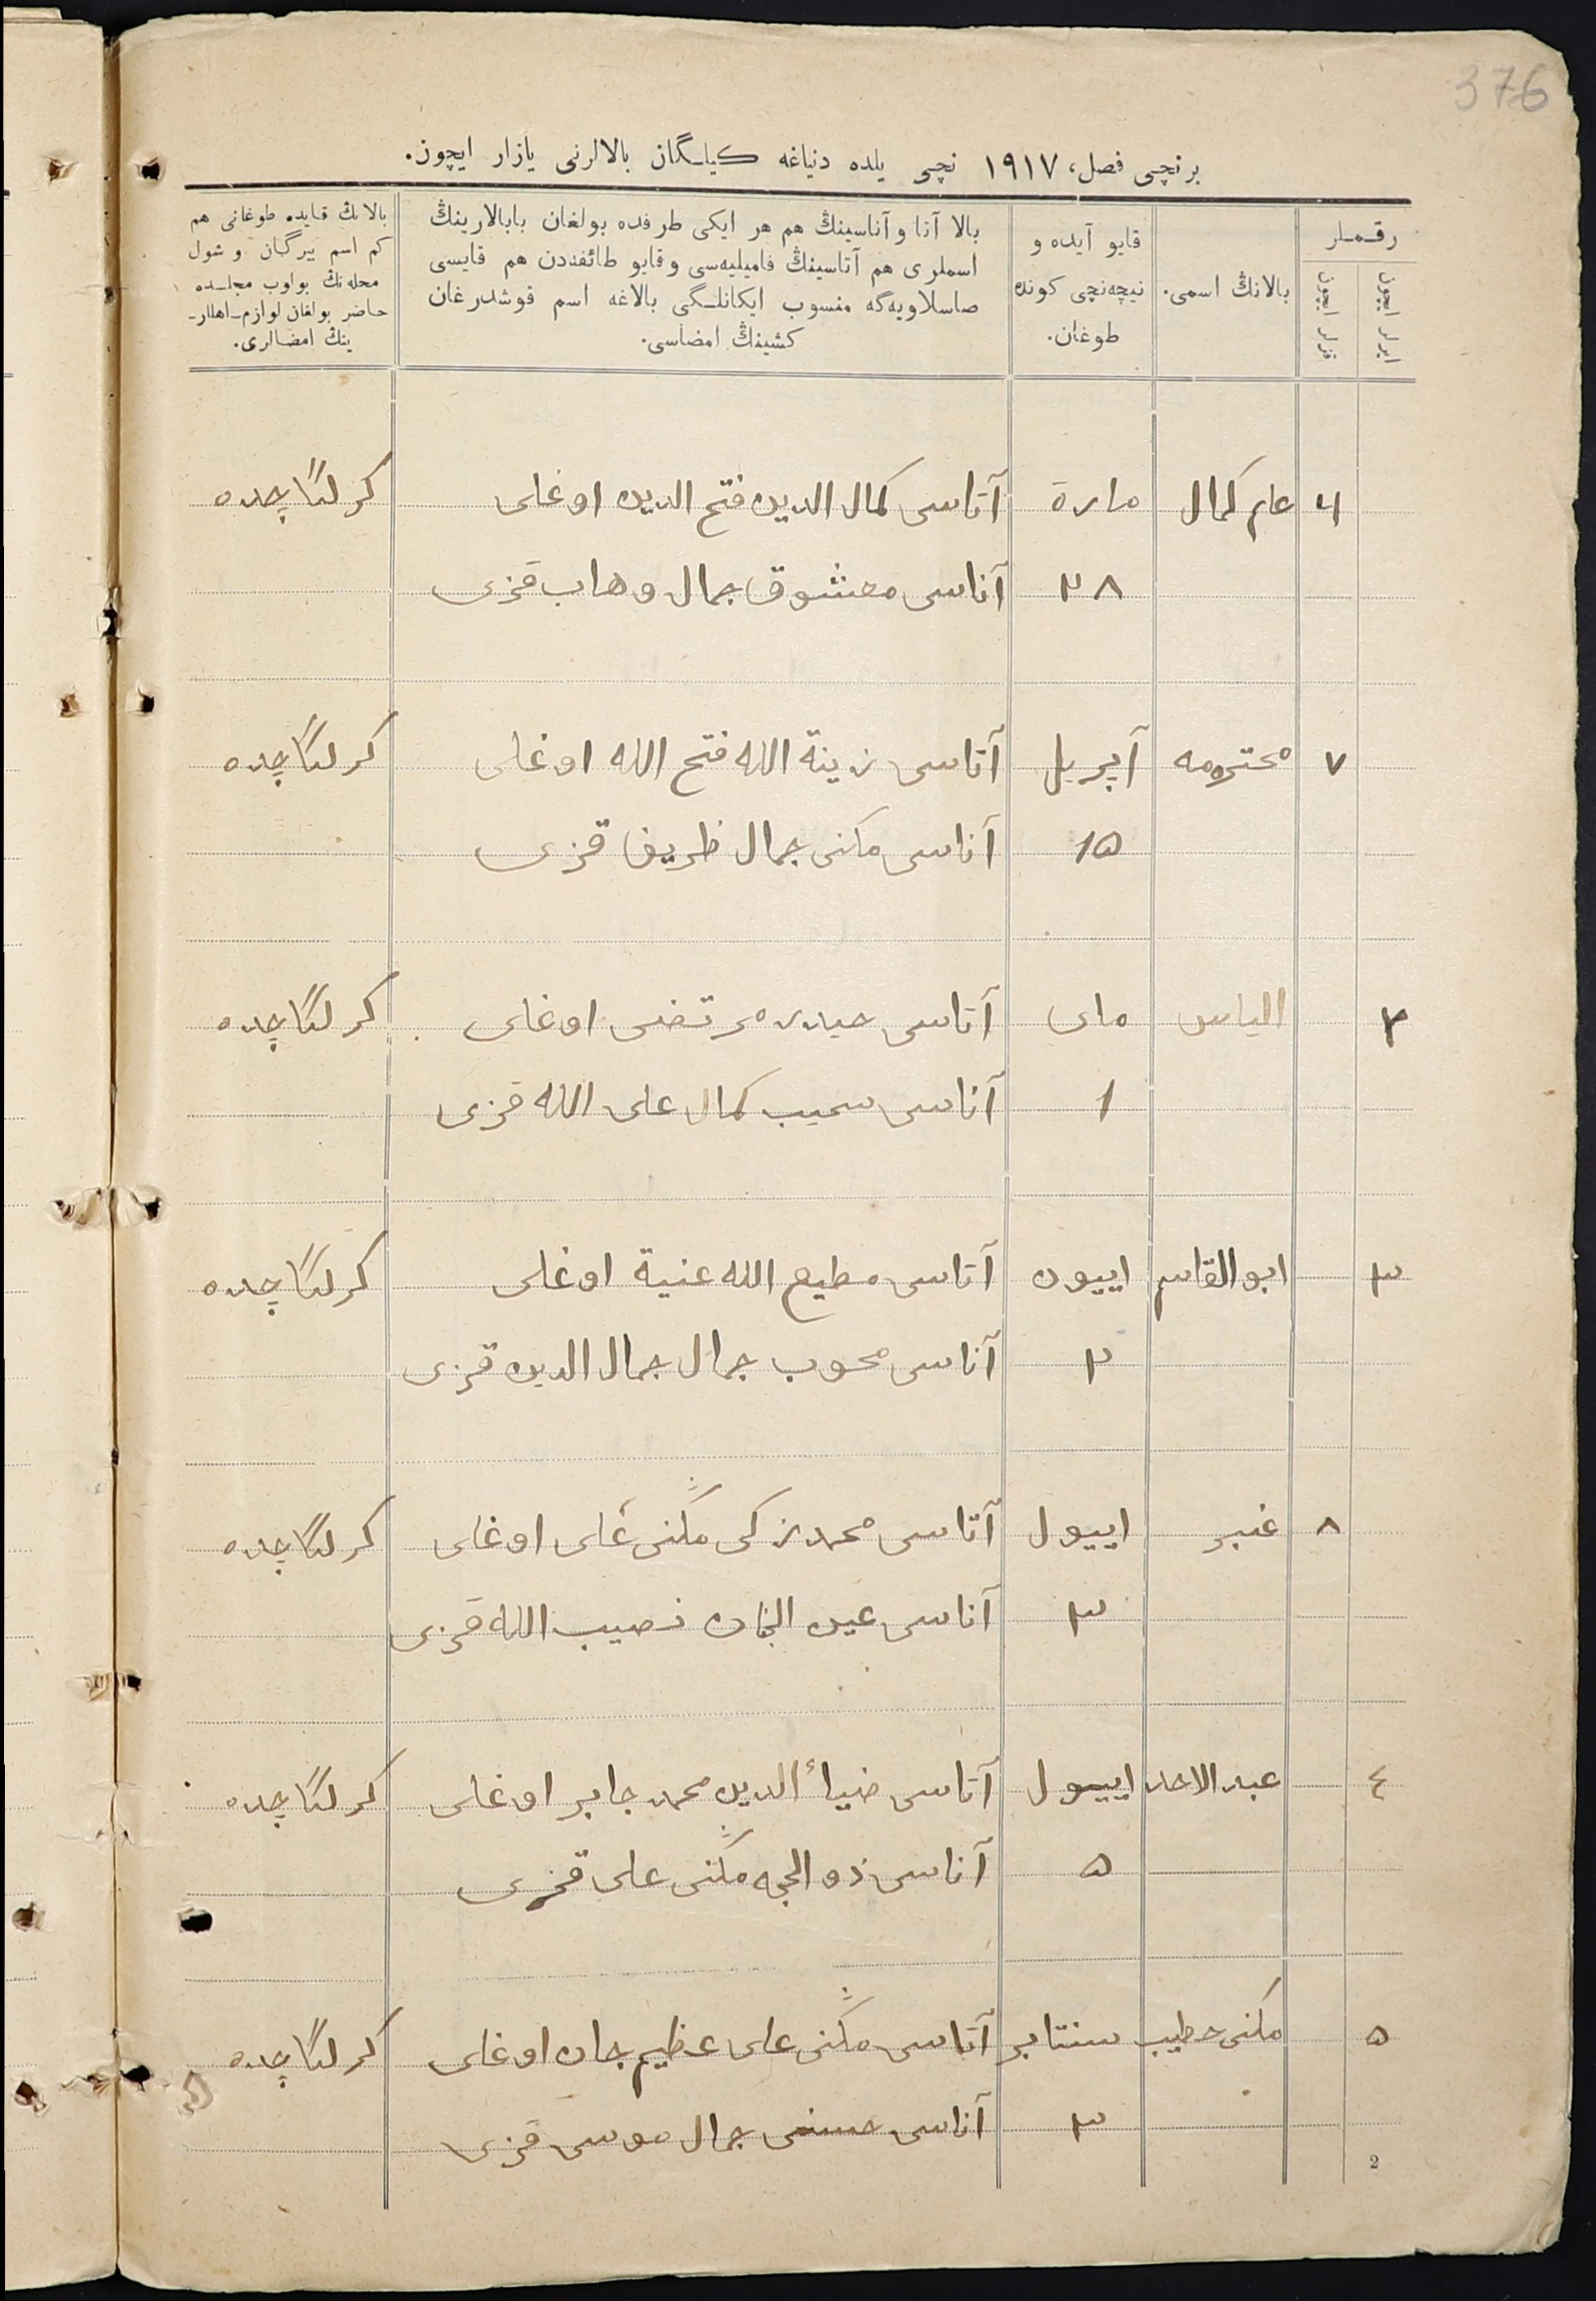 376
برنچی فصل، ١٩١٧ نچی یلده دنیاغه کیلگان بالالرنی یازار ایچون.
رقملر
ایرلر ایچون
قزلر ایچون
بالانڭ اسمی.
قایو آیده و
نیچه‌نچی کونده
طوغان.
بالا آتا و آناسینڭ هم هر ایکی طرفده بولغان بابالارینڭ
اسملری هم آتاسینڭ فامیلیه‌سی و قایو طائفه‌دن هم قایسی
صاسلاویه‌گه منسوب ایکانلگی بالاغه اسم قوشدرغان
کشینڭ امضاسی.
بالانڭ قایده طوغانی هم
کم اسم بیرگان و شول
محله‌نڭ بولوب مجلسده
حاضر بولغان لوازم اهللر-
ینڭ امضالری.
٦ کمال مارت آتاسی کمال الدین فتح الدین اوغلی
٢٨ آناسی معشوق جمال وهاب قزی
٧ محترمه آپریل آتاسی زینة الله فتح الله اوغلی
١٥ آناسی مکنی جمال ظریف قزی
٢ الیاس مای آتاسی حیدر مرتضی اوغلی
١ آناسی کمال علی الله قزی
٣ ابو القاسم اییون آتاسی مطیع الله اوغلی
٢ آناسی محبوب جمال جمال الدین قزی
٨ عنبر اییول آتاسی محمد زکی مکنی علی اوغلی
٣ آناسی عین نصیب الله قزی
٤ عبد الاحد اییول آتاسی ضیاء الدین محمد جابر اوغلی
٥ آناسی ذو الحجه مکنی علی قزی
٥ مکنی سنتابر آتاسی مکنی علی عظیم جان اوغلی
٣ آناسی حسنی جمال موسی قزی
2